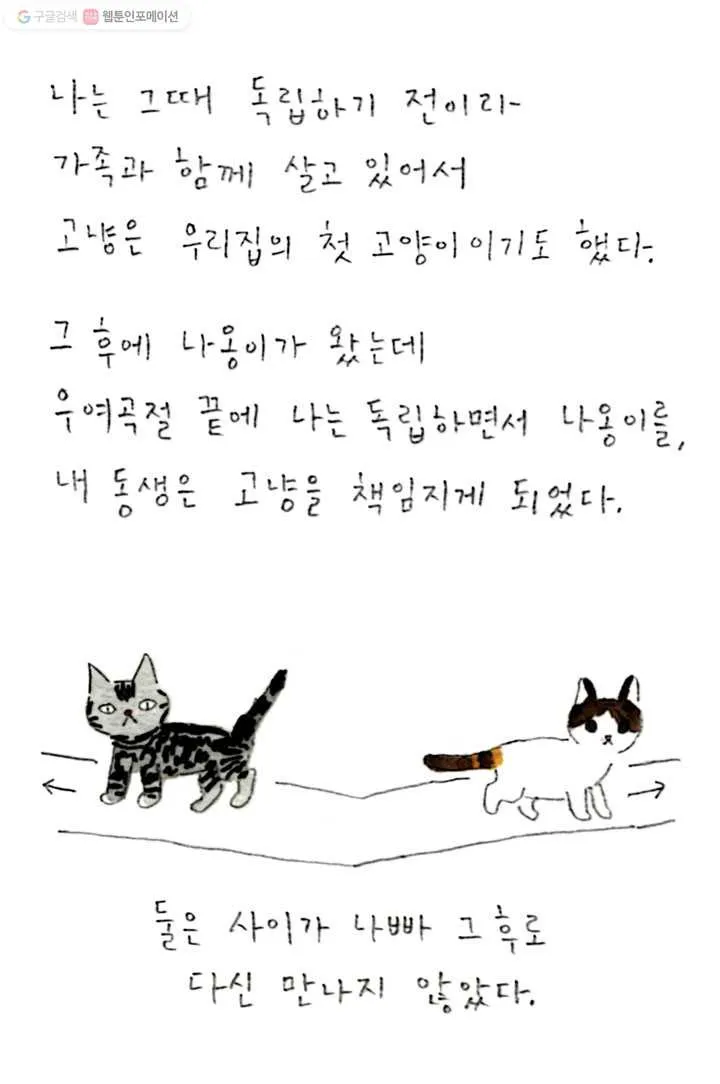 구글검색 웹툰인포메이션
나는 그때 독립하기 전이라
가족과 함께 살고 있어서
고냥은 우리집의 첫 고양이이기도 했다.
그 후에 나옹이가 왔는데
우여곡절 끝에 나는 독립하면서 나옹이를,
내 동생은 고냥을 책임지게 되었다.
둘은 사이가 나빠 그 후로
다신 만나지 않았다.